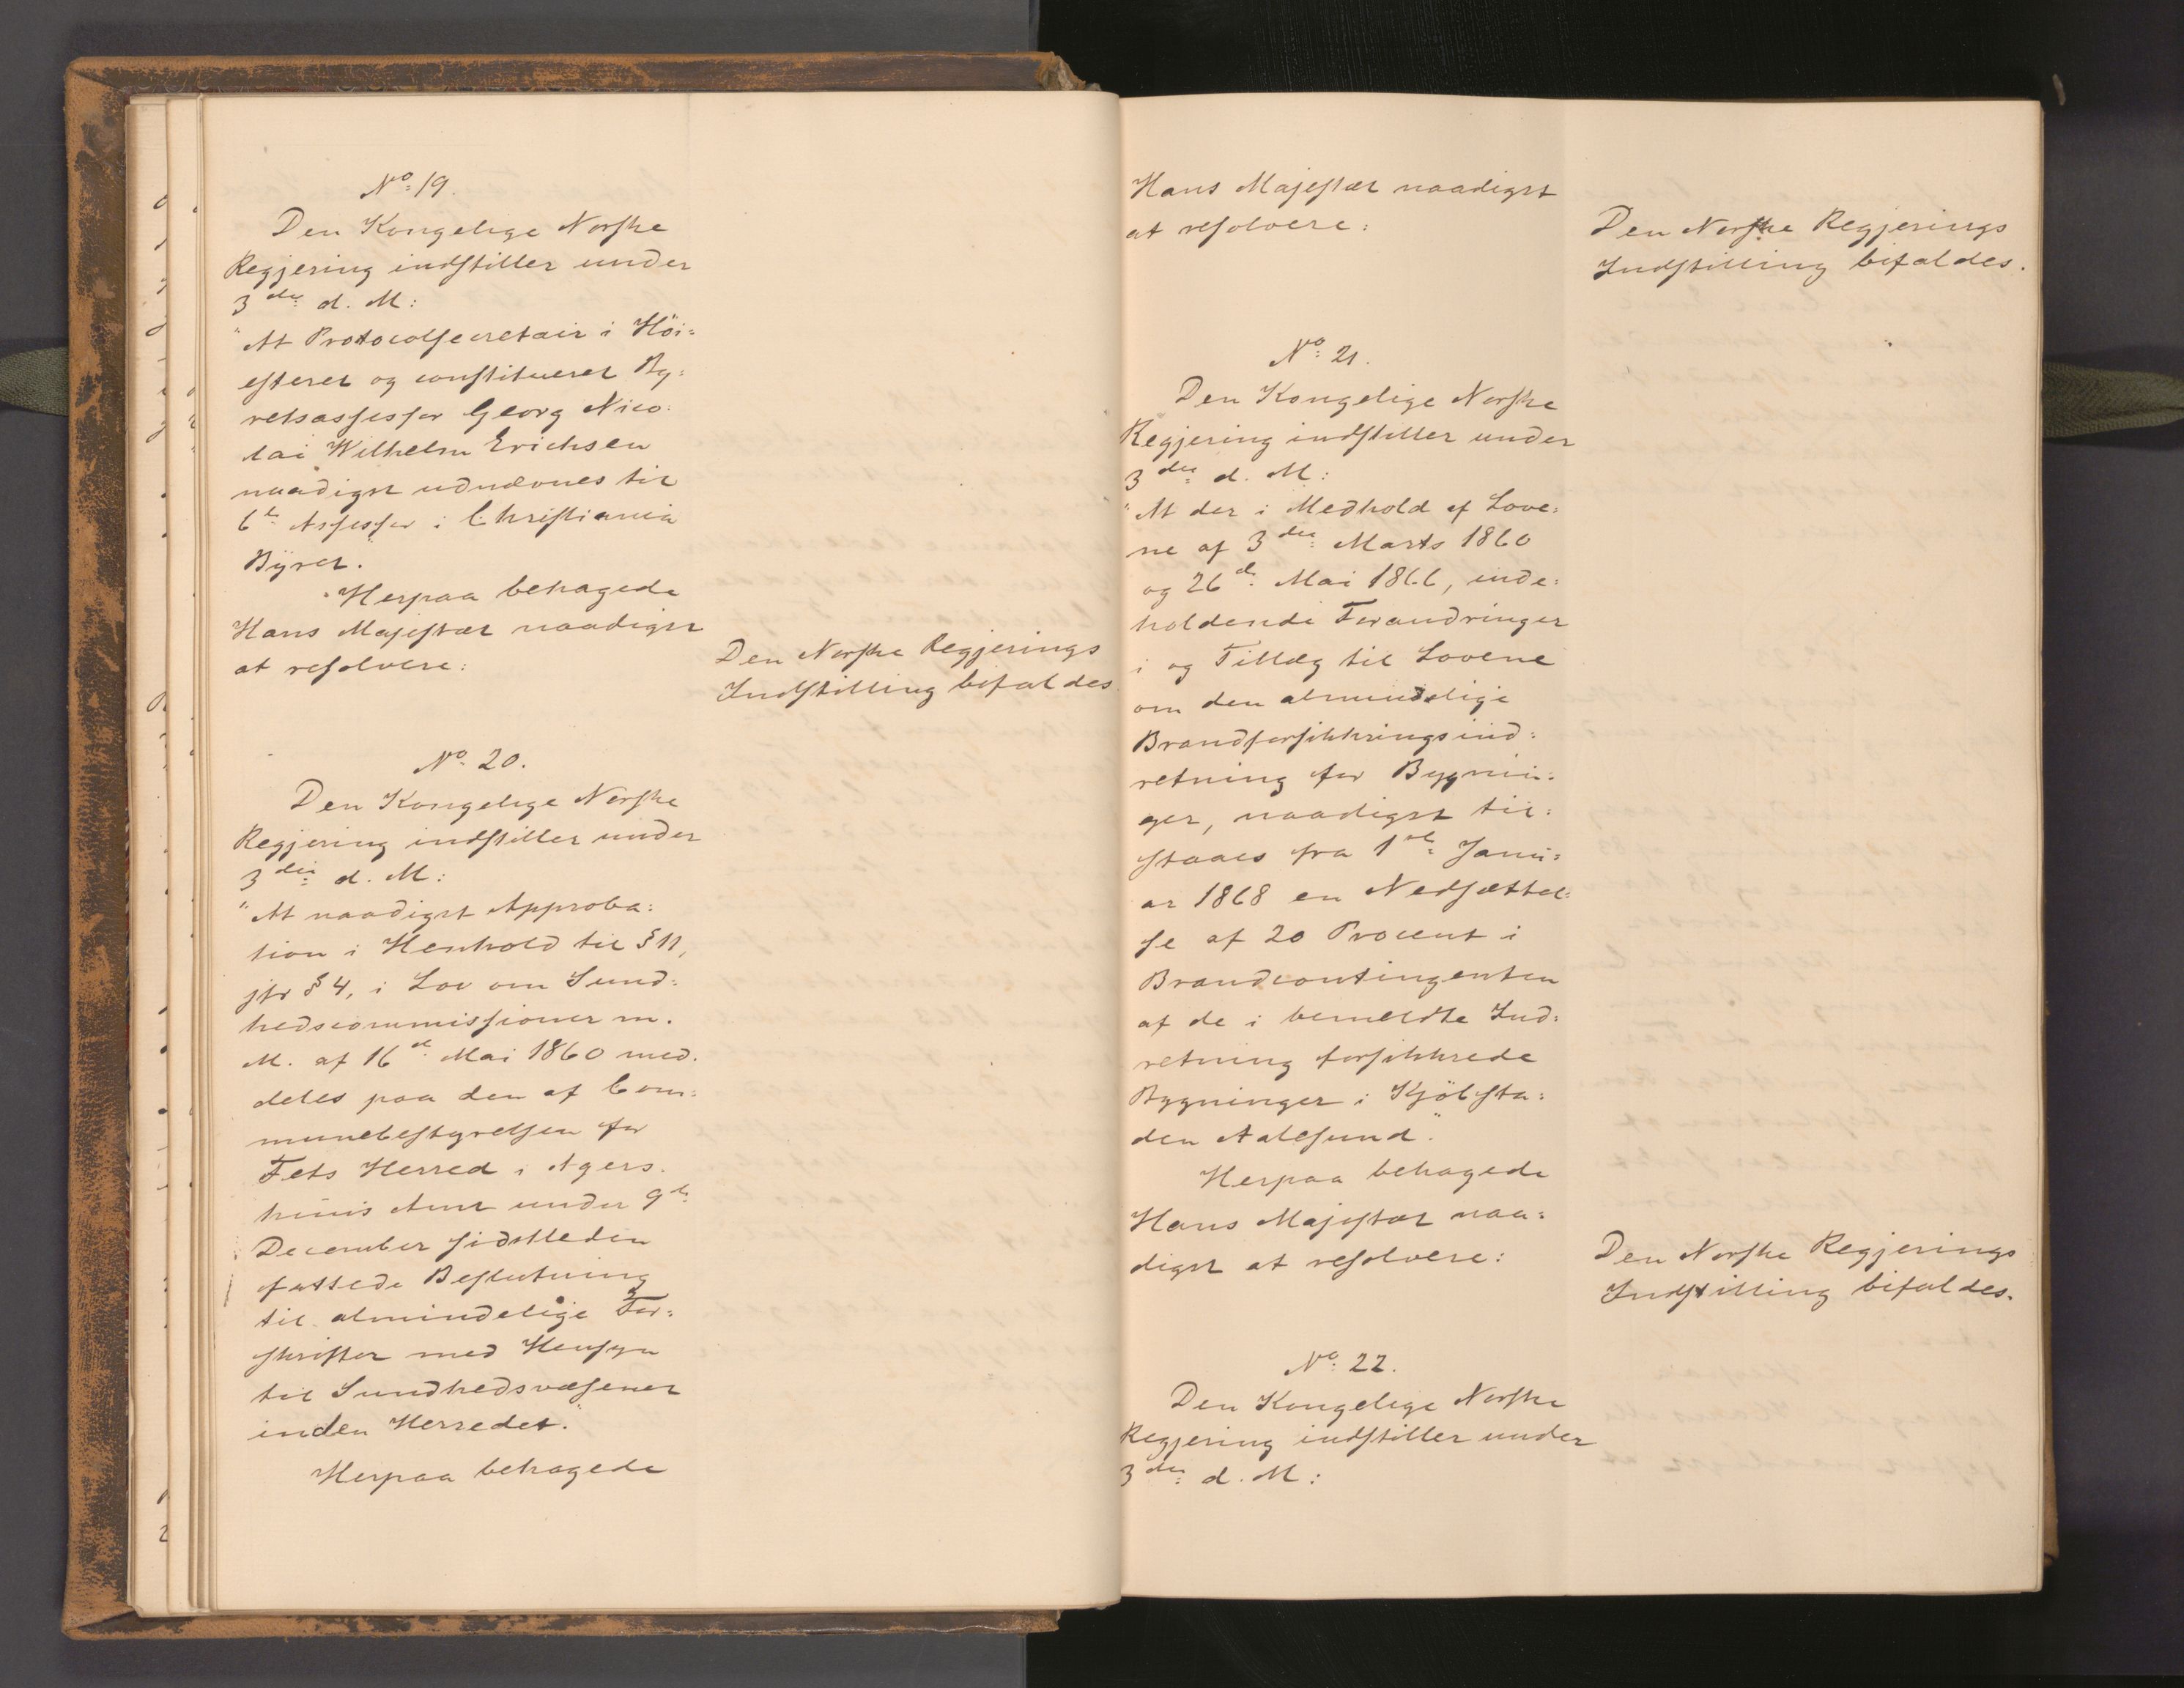 No: 19.
Den Kongelige Norske
Regjering indstiller under
3die d. M:
"At Protocolsecretair i Höi=
esteret og constitueret By=
retsassessor Georg Nico=
lai Wilhelm Erichsen
naadigst udnævnes til
6te Assessor i Christiania
Byret."
Herpaa behagede
Hans Majestæt naadigst
at resolvere:
Den Norske Regjerings
Indstilling bifaldes
No: 20.
Den Kongelige Norske
Regjering indstiller under
3die d. M:
"At naadigst Approba=
tion i Henhold til § 11,
jfr § 4, i Lov om Sund=
hedscommissioner m.
M. af 16de Mai 1860 med=
deles paa den af Com=
munebestyrelsen for
Fets Herred i Agers=
huus Amt under 9de
December sidstleden
fattede Beslutning
til almindelige For=
skrifter med Hensyn
til Sundhedsvæsenet
inden Herredet."
Herpaa behagede
Hans Majestæt naadigst
at resolvere:
Den Norske Regjerings
Indstilling bifaldes.
No: 21.
Den Kongelige Norske
Regjering indstiller under
3die d. M:
"At der i Medhold af Love=
ne af 3die Marts 1860
og 26de Mai 1866, inde=
holdende Forandringer
i og Tillæg til Lovene
om den almindelige
Brandforsikkringsind=
retning for Bygnin=
ger, naadigst til=
staaes fra 1ste Janu=
ar 1868 en Nedsættel=
se af 20 Procent i
Brandcontingenten
af de i bemeldte Ind=
retning forsikkrede
Bygninger i Kjöbsta=
den Aalesund."
Herpaa behagede
Hans Majestæt naa=
digst at resolvere:
Den Norske Regjerings
Indstilling bifaldes.
No: 22.
Den Kongelige Norske
Regjering indstiller under
3die d. M: